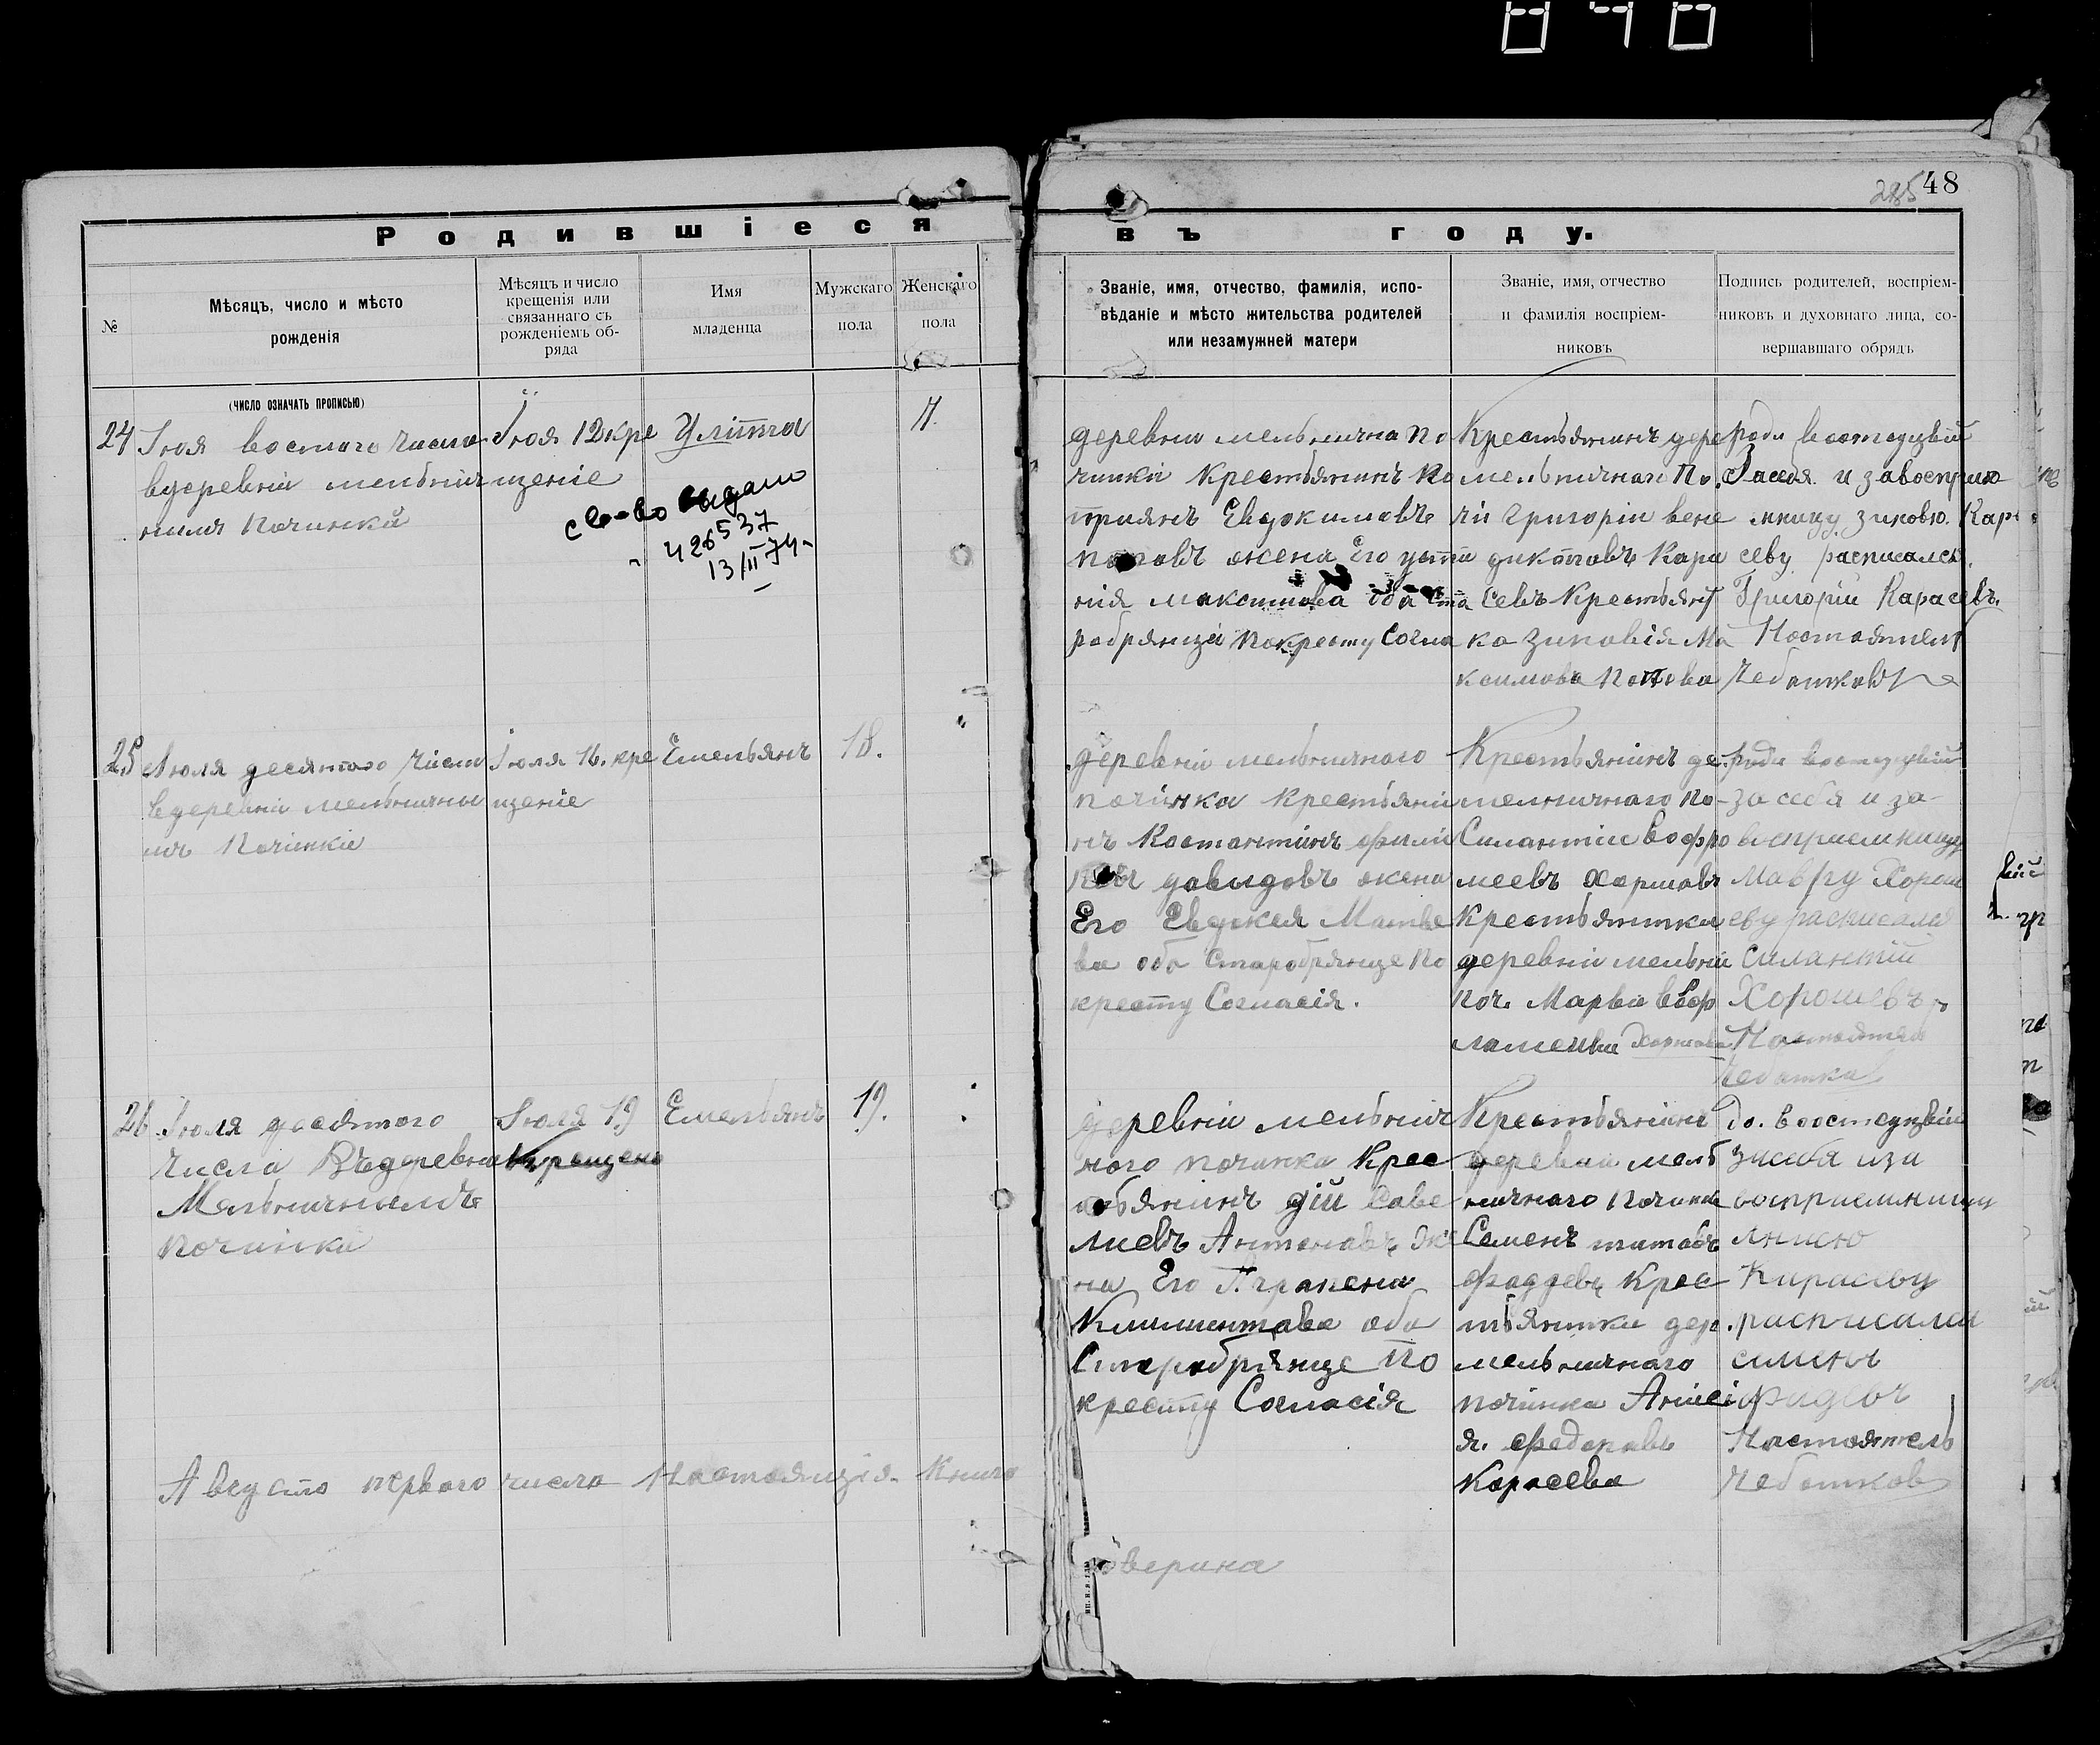 848
285 48
Родившіеся въ году.
№
Мѣсяцъ, число и мѣсто
рожденія
Мѣсяцъ и число
крещенія или
связаннаго съ
рожденіемъ об-
ряда
Имя
младенца
Мужскаго
пола
Женскаго
пола
Званіе, имя, отчество, фамилія, испо-
вѣданіе и мѣсто жительства родителей
или незамужней матери
Званіе, имя, отчество
и фамилія воспріем-
никовъ
Подпись родителей, воспріем-
никовъ и духовнаго лица, со-
вершавшаго обрядъ
(число означать прописью)
24
Іюля восмаго числа
вдеревни мельнич
нимъ Починки
Іюля 12 кре
щеніе
Улітта
св-во выдано
426537
13/II-74
деревни мельнична по
чинки Крестьянинъ Ко
приянъ Евдокимовъ
повъ жена Его усти
нія Максимова оба ста
робрянцы покресту Согла
Крестьянинъ дере
мельничнаго По.
чи Григоріи вене
диктовъ Кара
севъ Крестьян
ка Зиновія Ма
ксимова Попова
За себя и завосприю
мницу Зиновю
расписался
Григорій Карасевъ
Настоятель
Чеботковъ
25
Июля десятого числа
вдеревни мельнични
мъ Почінкіе
Іюля 16. кре
щеніе
Емельянъ
18.
деревніи мельничного
почінка Крестьяни
нъ Костантінъ филі
повъ давидовъ жена
Его Евдокея Матве
ва оба Старобрянце По
кресту Согласія.
Крестьянінъ де.
мелничнаго По-
Силантіи Вофро
меевъ Хоршовъ
Крестьянтка
деревніи мельни
Поч. Марвіа
за себя и за
восприемницу
Мавру
расписался
Силантій
Хорошевъ
Настоятел
Чеботка
26
Іюля десятого
числа Въдеревни
Мельничнымъ
Починки
Іюля 19
Крещено
Емельянъ
19.
деревніи мельнич
ного починка Крес
тьянинъ дій Саве
лиевъ Антоновъ Же
на Его Аграпена
Климентова оба
Старобрянце По
кресту Согласія
Крестьянінъ
деревни мель
ничнаго Починка
Семенъ титовъ
фаддевъ Крес
тьянтка дер.
мельничнаго
почінка Анісі
я. федоровъ
Карасева
восприемницу
Карасеву
расписался
Семенъ
Фадевъ
Настоятель
Чеботков
Августо первого число Настоящія Книга
верина